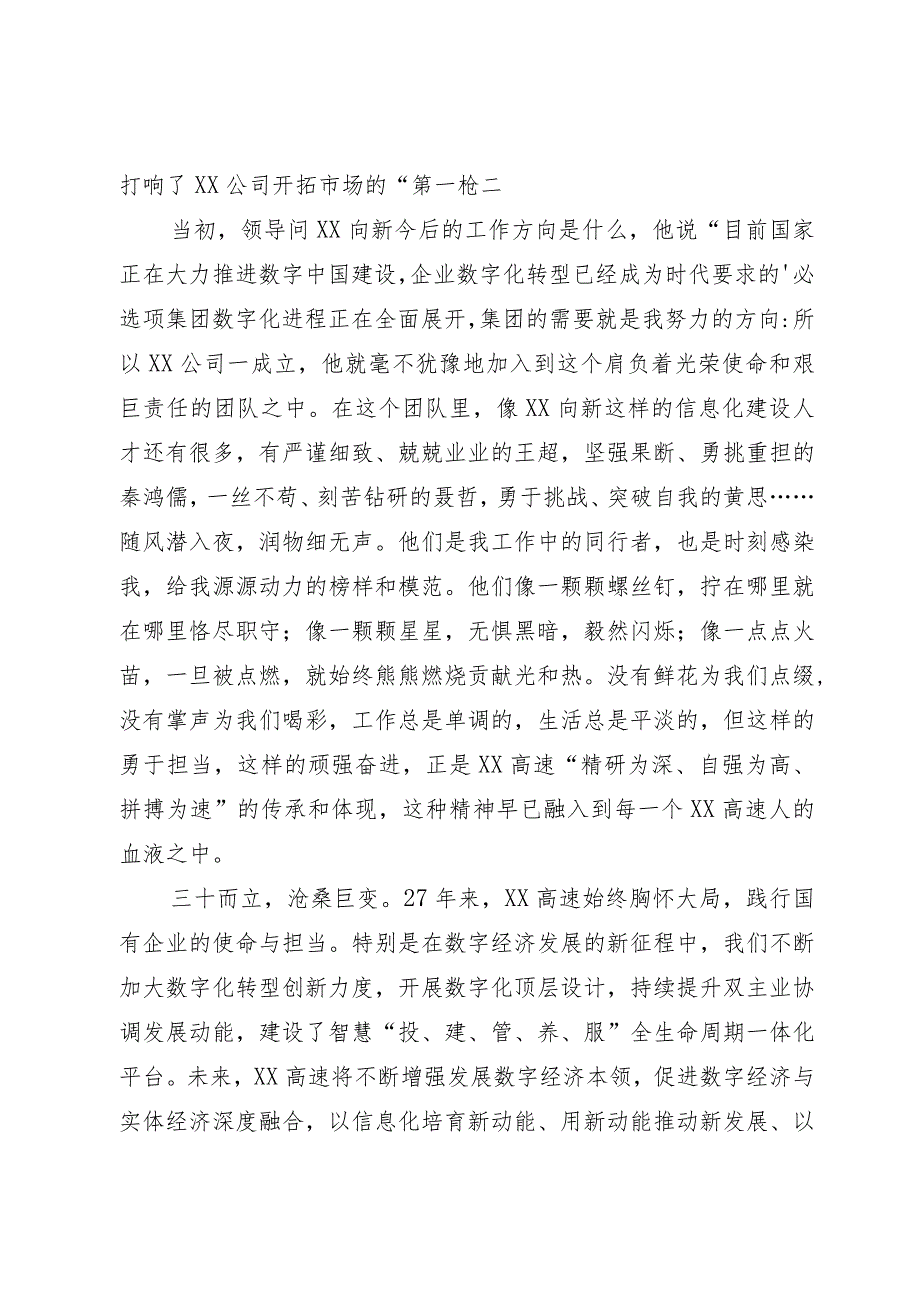 打响了 XX 公司开拓市场的“第一枪二
当初，领导问 XX 向新今后的工作方向是什么，他说“目前国家
正在大力推进数字中国建设,企业数字化转型已经成为时代要求的'必
选项集团数字化进程正在全面展开,集团的需要就是我努力的方向:所
以 XX 公司一成立，他就毫不犹豫地加入到这个肩负着光荣使命和艰
巨责任的团队之中。在这个团队里，像 XX 向新这样的信息化建设人
才还有很多，有严谨细致、兢兢业业的王超，坚强果断、勇挑重担的
秦鸿儒，一丝不苟、刻苦钻研的聂哲，勇于挑战、突破自我的黄思……
随风潜入夜，润物细无声。他们是我工作中的同行者，也是时刻感染
我，给我源源动力的榜样和模范。他们像一颗颗螺丝钉，拧在哪里就
在哪里恪尽职守；像一颗颗星星，无惧黑暗，毅然闪烁；像一点点火
苗，一旦被点燃，就始终熊熊燃烧贡献光和热。没有鲜花为我们点缀,
没有掌声为我们喝彩，工作总是单调的，生活总是平淡的，但这样的
勇于担当，这样的顽强奋进，正是 XX 高速“精研为深、自强为高、
拼搏为速”的传承和体现，这种精神早已融入到每一个 XX 高速人的
血液之中。
三十而立，沧桑巨变。27 年来，XX 高速始终胸怀大局，践行国
有企业的使命与担当。特别是在数字经济发展的新征程中，我们不断
加大数字化转型创新力度，开展数字化顶层设计，持续提升双主业协
调发展动能，建设了智慧“投、建、管、养、服”全生命周期一体化
平台。未来，XX 高速将不断增强发展数字经济本领，促进数字经济与
实体经济深度融合，以信息化培育新动能、用新动能推动新发展、以